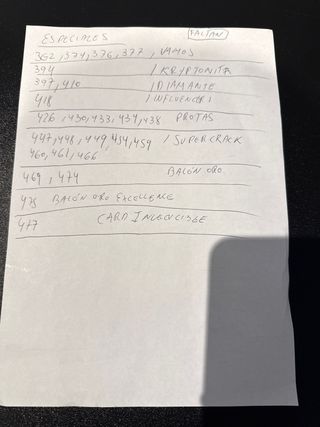 ESPECIALES FALTAN
362, 374, 376, 377, VAMOS
394 / KRYPTONITA
397, 410 / DIAMANTE
418 / INFLUENCER
426, 430, 433, 434, 438 PROTAS
447, 448, 449, 454, 459 / SUPERCRACK
460, 461, 466
469, 474 BALÓN ORO
475 BALÓN ORO EXCELLENCE
477 CARD INVENCIBLE